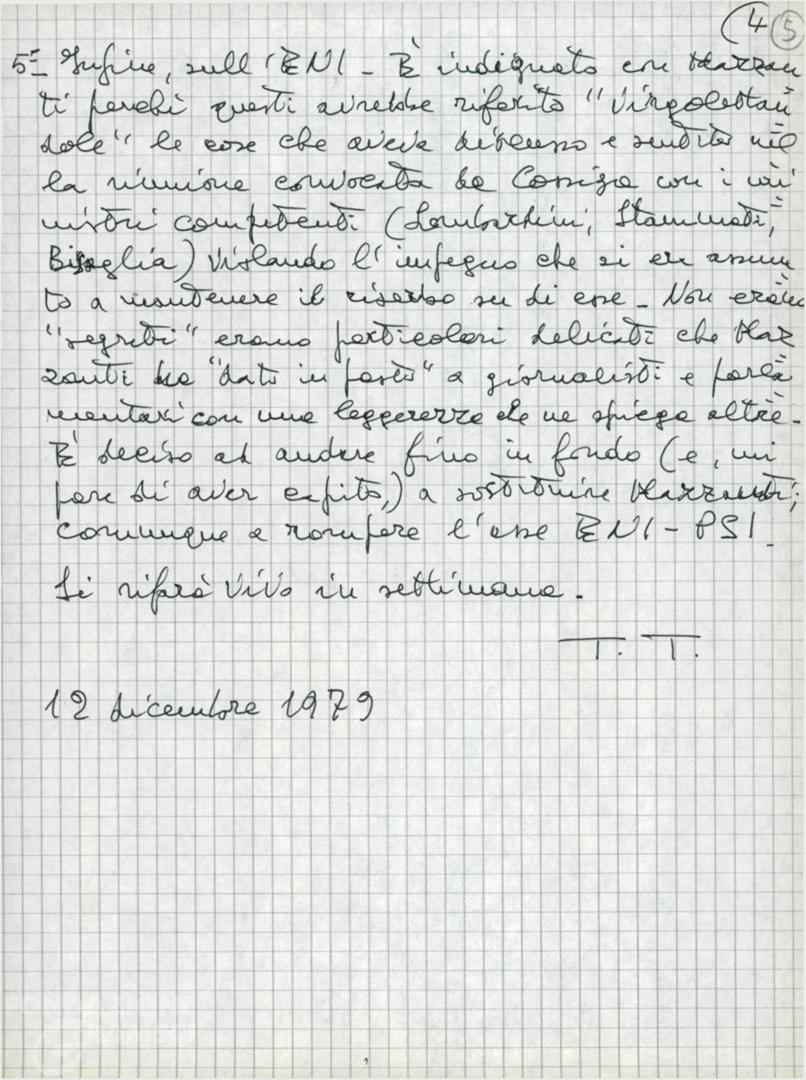 4 5
5º- Infine, sull'ENI - È indignato con Mazzan
ti perché questi avrebbe riferito "virgolettan=
dole" le cose che aveva discusso e sentito nel
la riunione convocata da Cossiga con i mi=
nistri competenti (Lombardini, Stammati,
Bisaglia) violando l'impegno che si era assun
to a mantenere il riserbo su di esse - Non erano
"segreti" erano particolari delicati che Maz
zanti ha "dato in pasto" a giornalisti e parla=
mentari con una leggerezza che ne spiega altre -
È deciso ad andare fino in fondo (e, mi
pare di aver capito,) a sostituire Mazzanti;
comunque a rompere l'asse ENI - PSI.
Si rifarà vivo in settimana.
T. T.
12 dicembre 1979